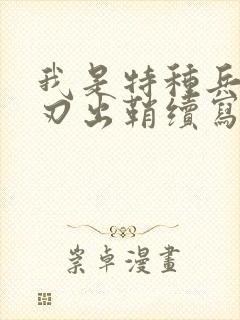 我是特種兵
刃出鞘續寫
崇卓漫畫